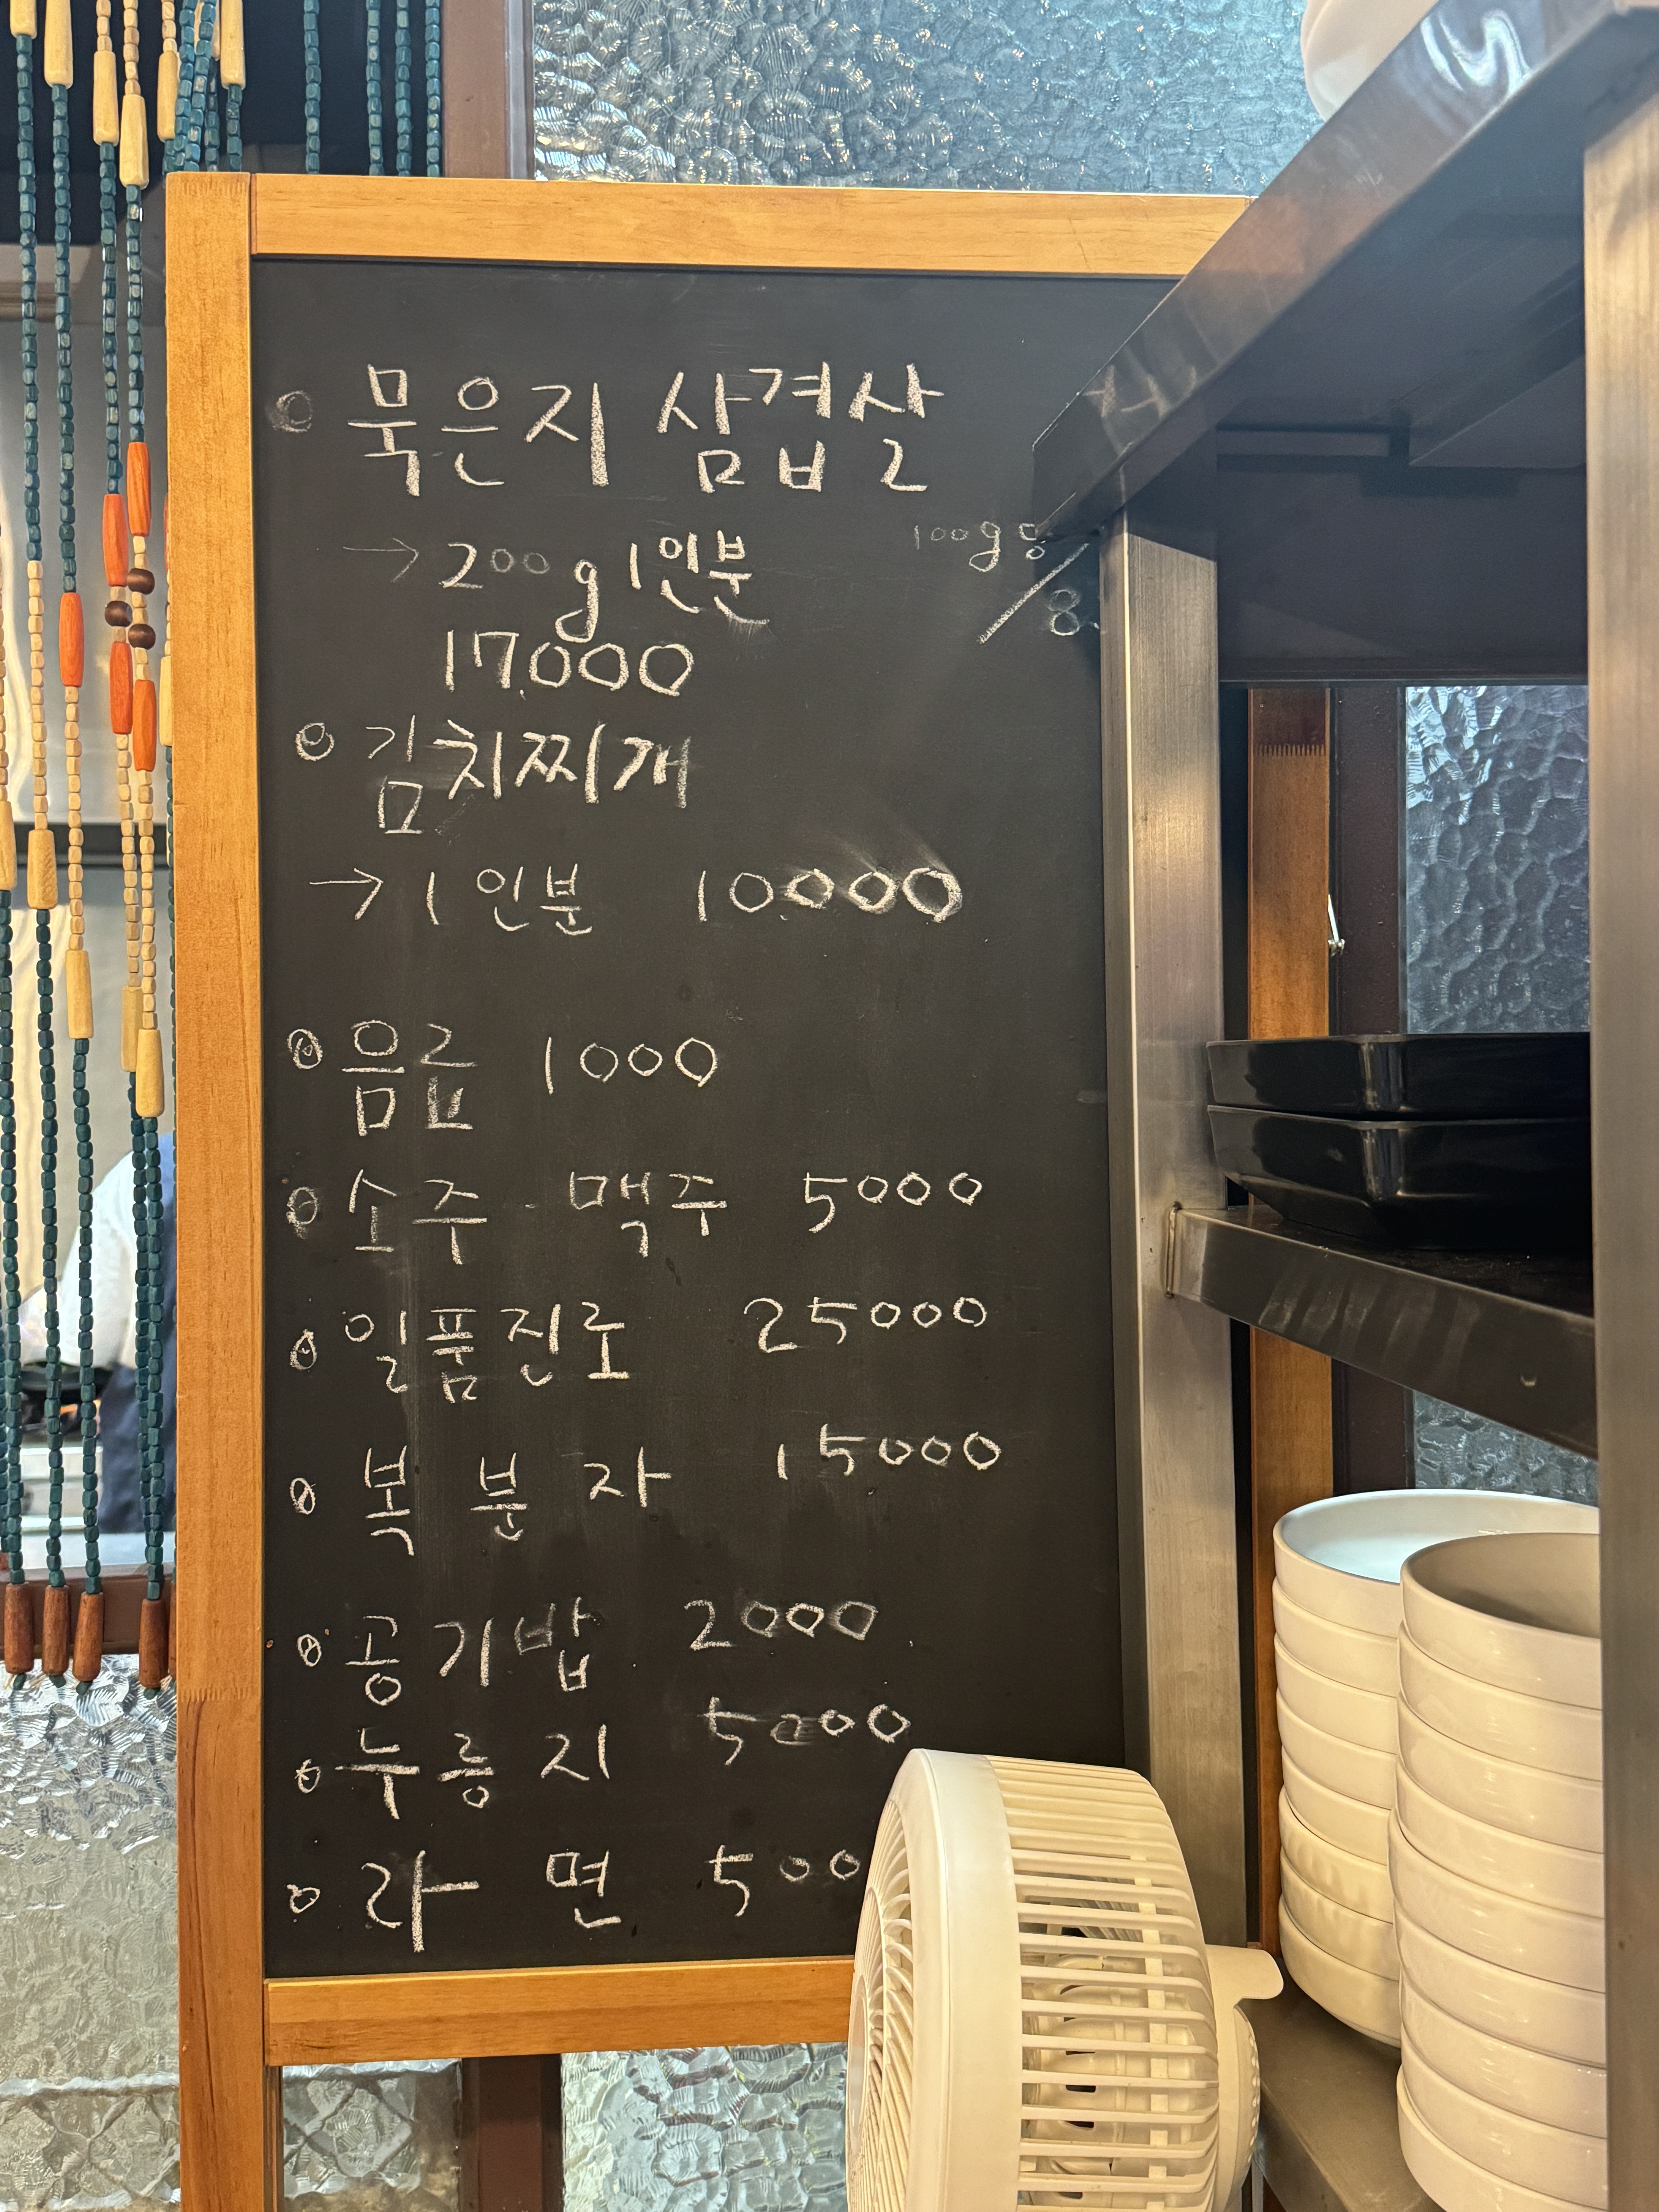 묵은지 삼겹살
→ 200g 1인분
17,000
100g당
8,
김치찌개
→ 1인분 10,000
음료 1000
소주 · 맥주 5000
일품진로 25000
복분자 15000
공기밥 2000
누룽지 5000
라면 500